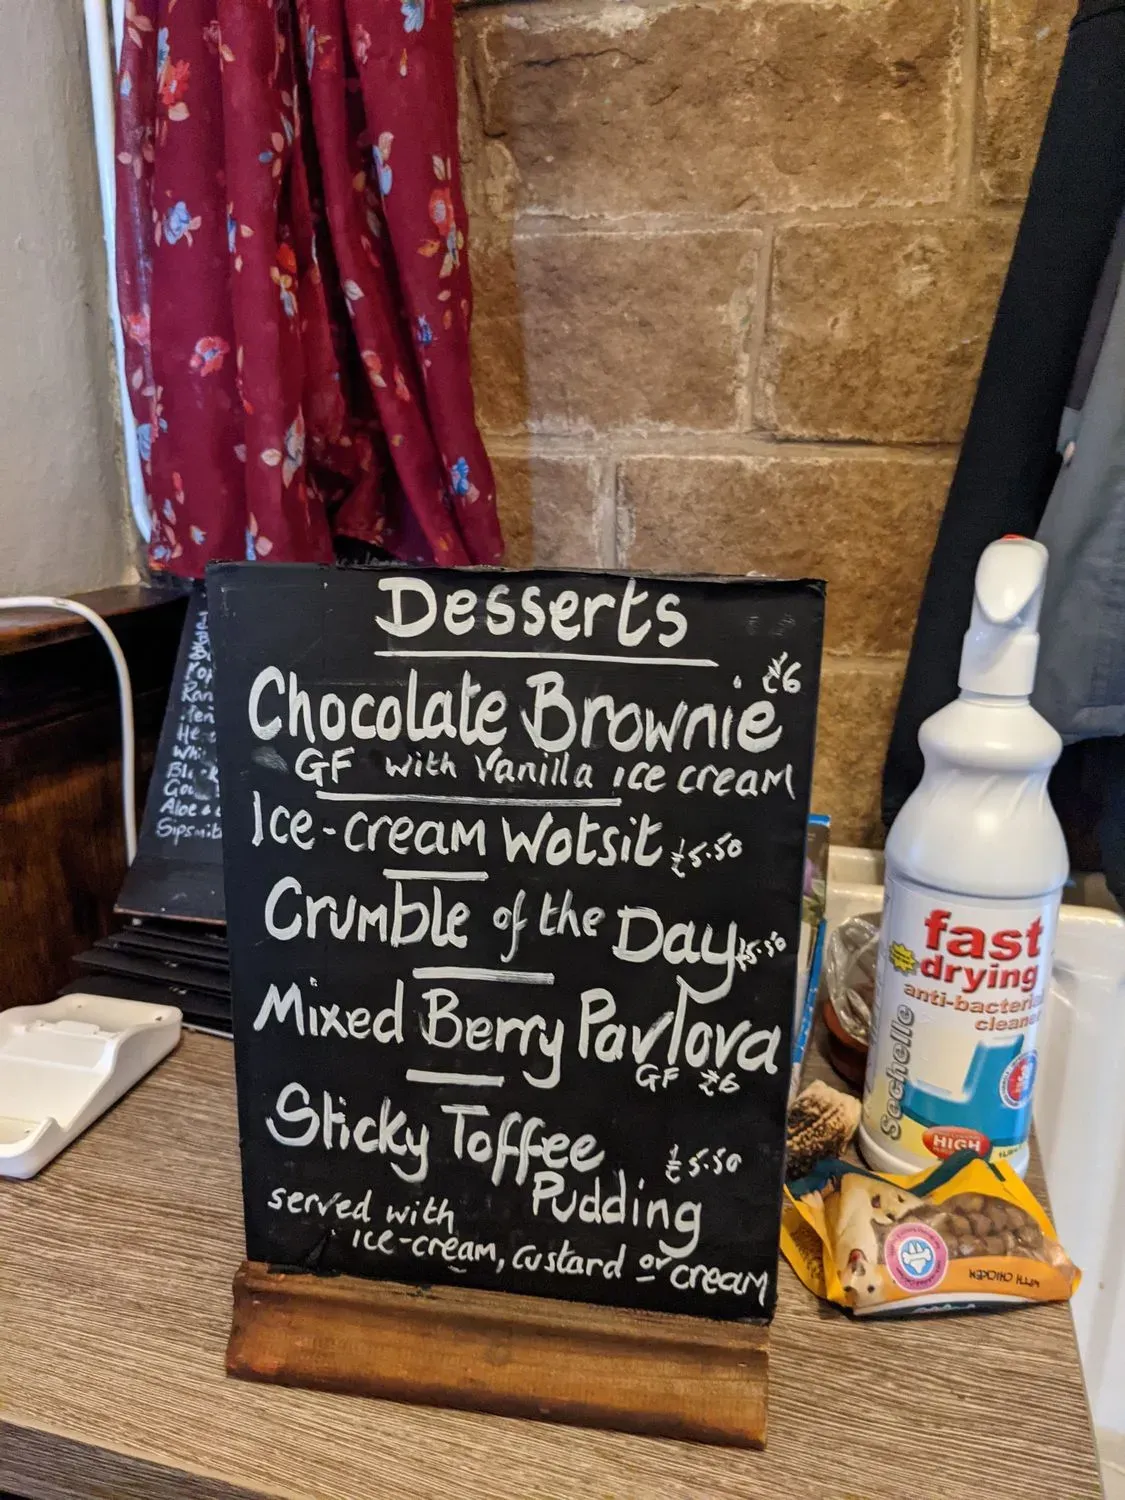 Desserts
£6
Chocolate Brownie
GF with Vanilla ice cream
Ice-cream Wotsit £5.50
Crumble of the Day £5.50
Mixed Berry Pavlova
GF £6
Sticky Toffee £5.50
Pudding
served with
ice-cream, custard or cream
Aloe &
Sipsmit
fast
drying
anti-bacteria
cleane
Sechelle
HIGH
WITH CHICKEN